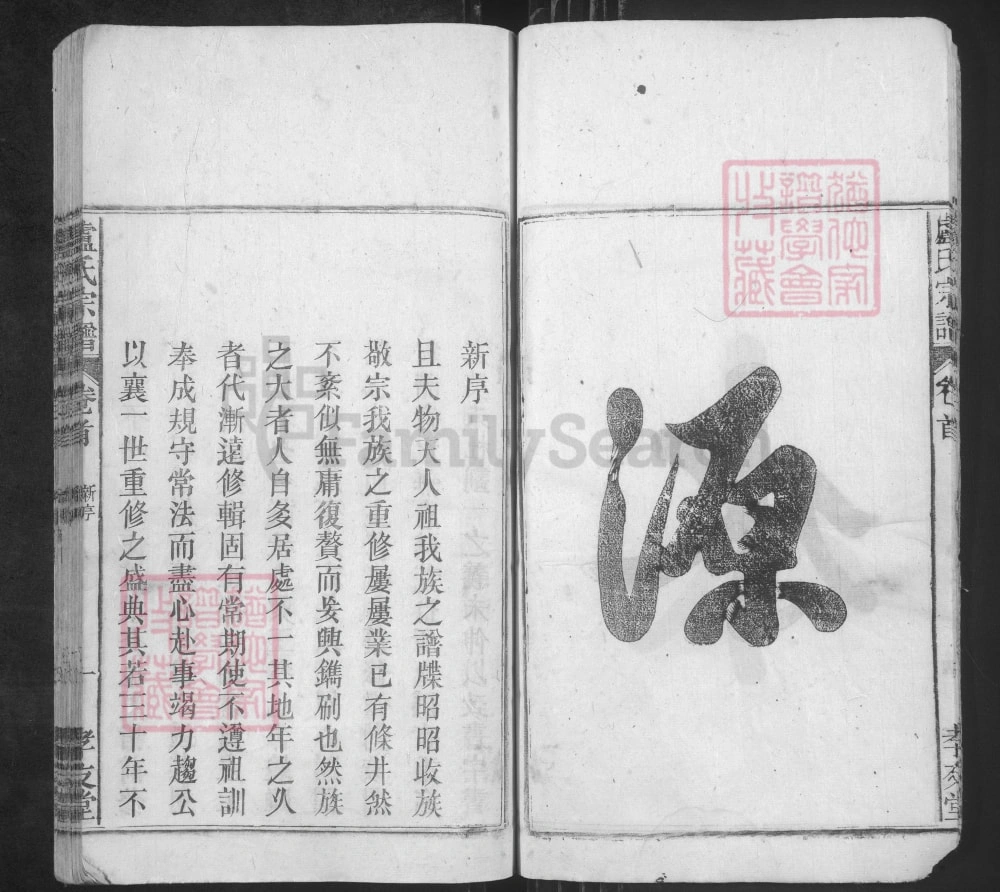 盧氏宗譜
卷首
孝友堂
源
新序
且夫物本天人本祖我族之譜牒昭昭收族
敬宗我族之重修屢屢業已有條井然
不紊似無庸復贅而爰興鐫刷也然族
之大者人自多居處不一其地年之久
者代漸遠修輯固有常期使不遵祖訓
奉成規守常法而盡心赴事竭力趨公
以襄一世重修之盛典其若三十年不
盧氏宗譜
卷首
新序
一
孝友堂
FamilySearch